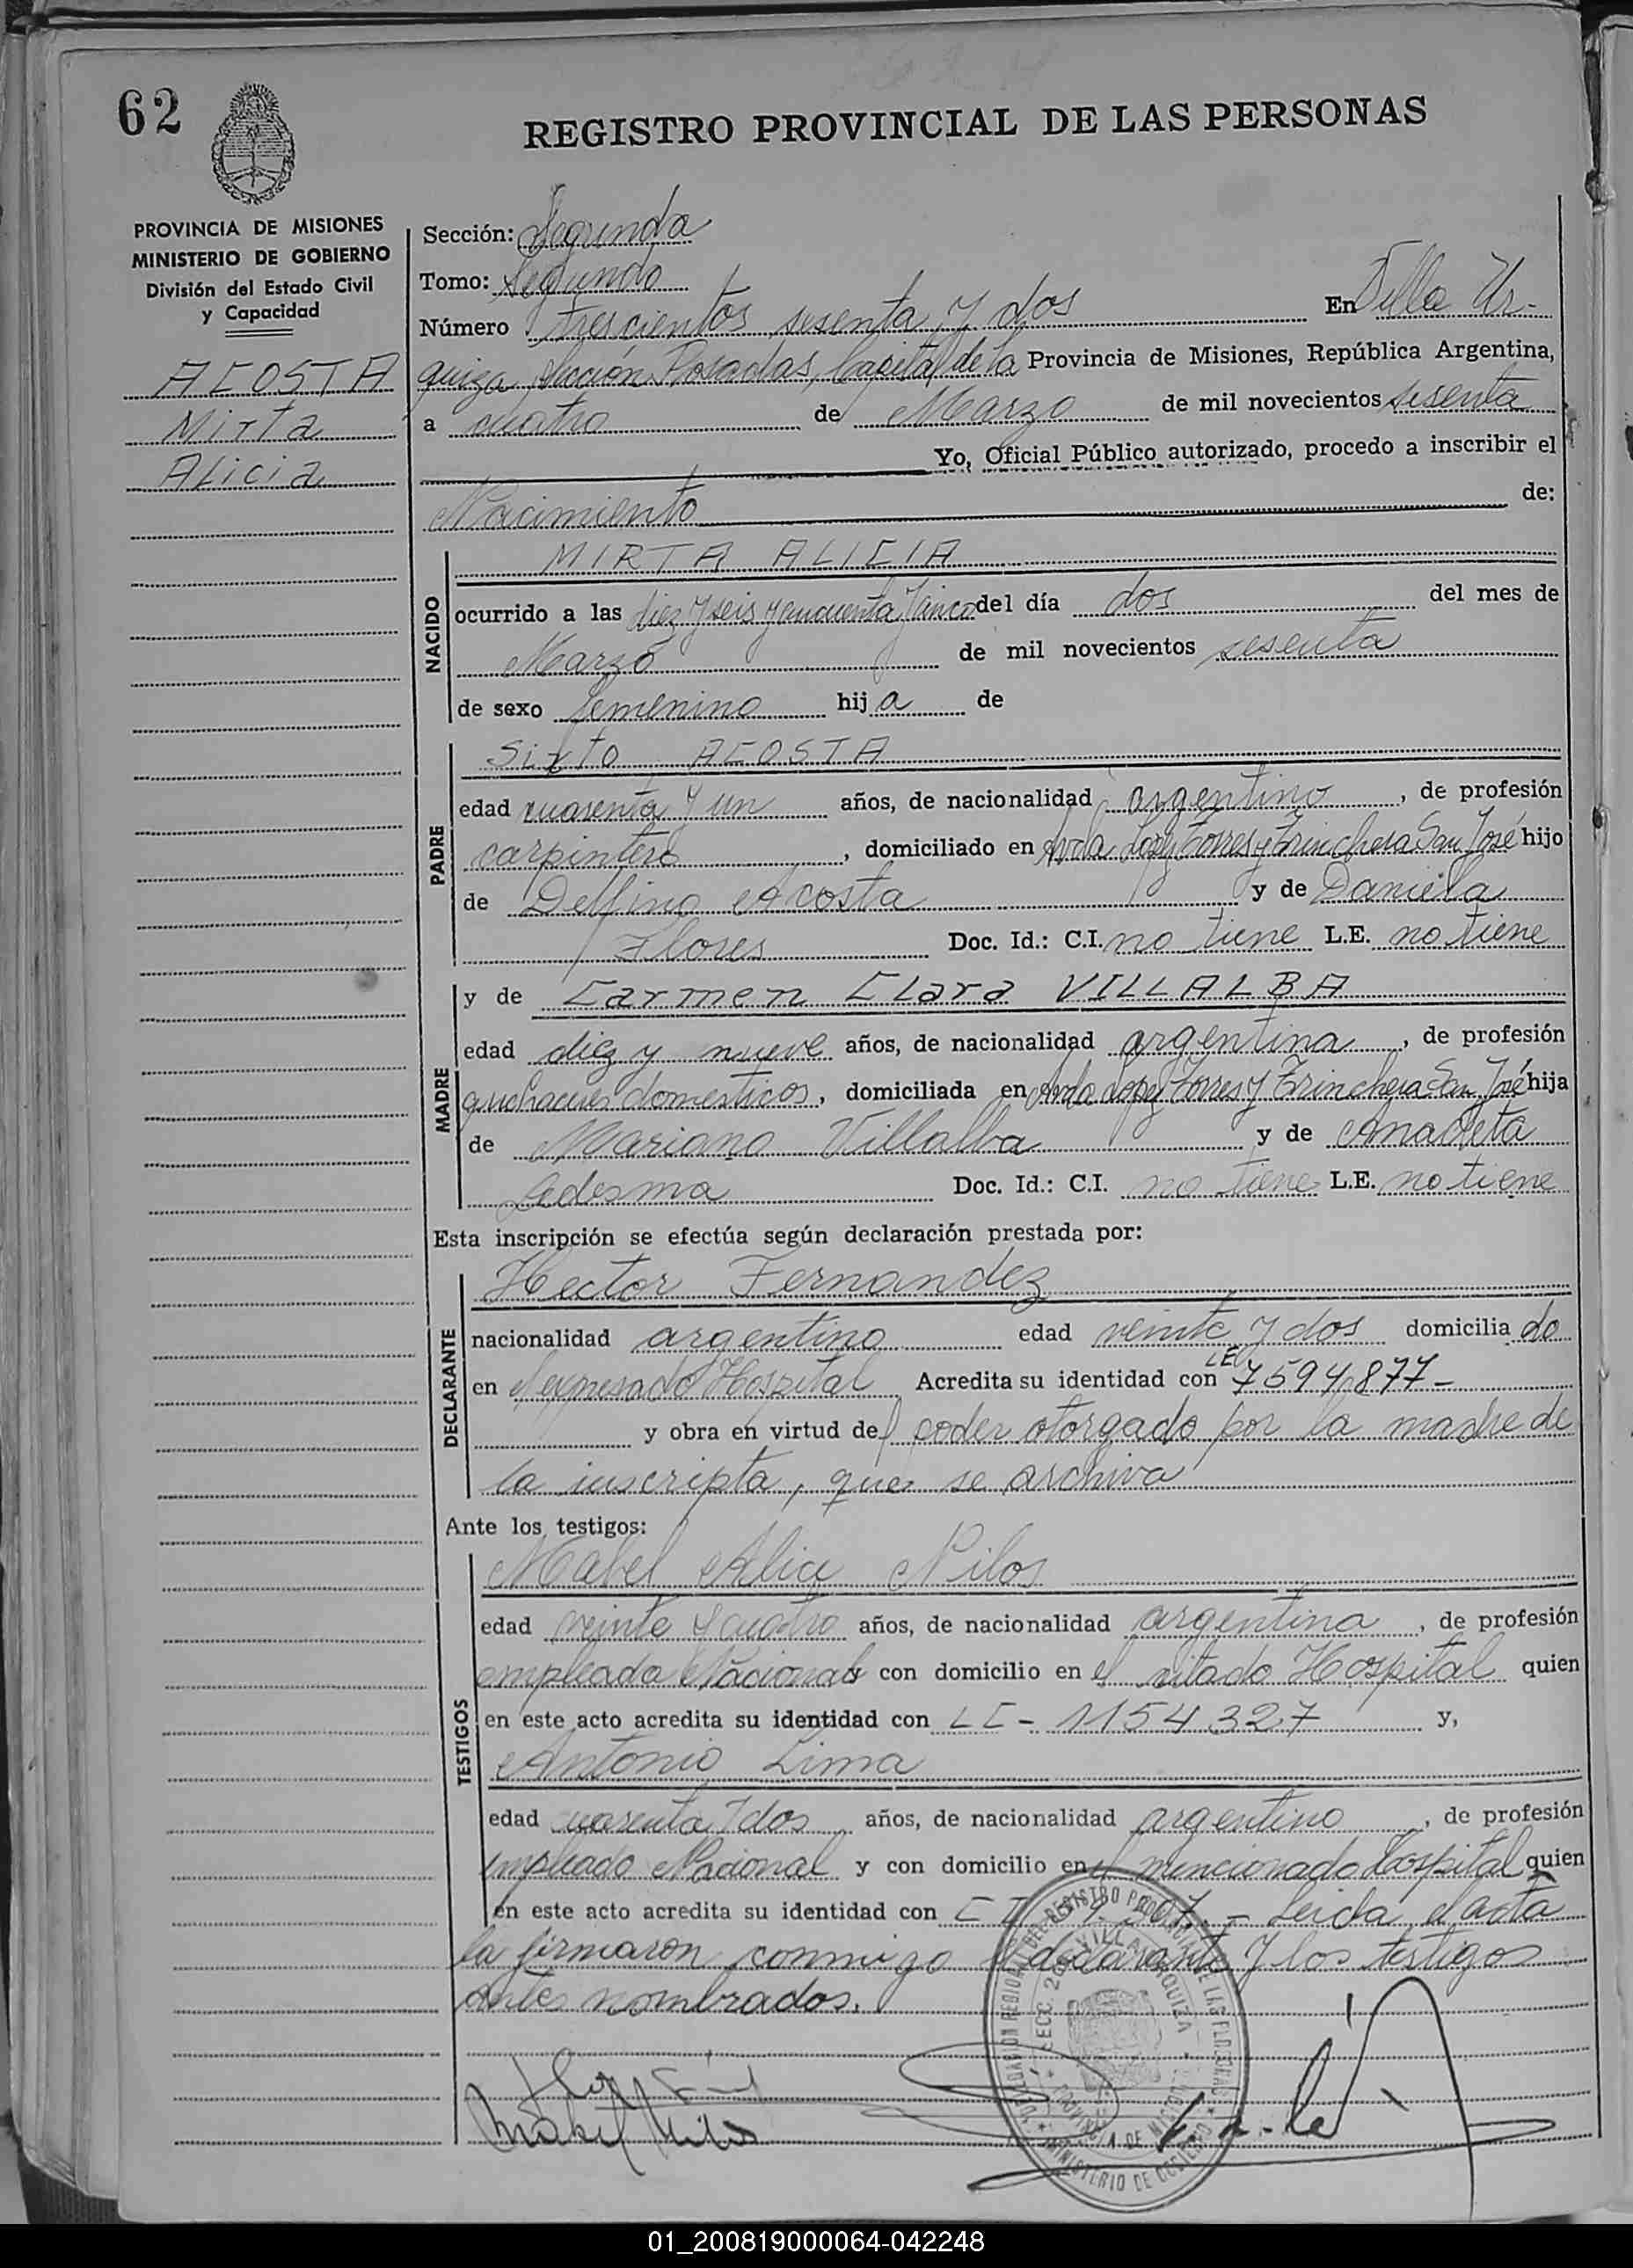 62
REGISTRO PROVINCIAL DE LAS PERSONAS
PROVINCIA DE MISIONES
MINISTERIO DE GOBIERNO
División del Estado Civil
y Capacidad
ACOSTA
Mirta
Alicia
Sección: Segunda
Tomo: Segundo
Número trescientos sesenta y dos En Villa Ur-
quiza, Sección Posadas, Capital de la Provincia de Misiones, República Argentina,
a cuatro de Marzo de mil novecientos sesenta
Yo, Oficial Público autorizado, procedo a inscribir el
Nacimiento de:
NACIDO
MIRTA ALICIA
ocurrido a las diez y seis y cincuenta y cinco del día dos del mes de
Marzo de mil novecientos sesenta
de sexo femenino hija de
PADRE
Sixto ACOSTA
edad cuarenta y un años, de nacionalidad argentino, de profesión
carpintero, domiciliado en Avda Lopez Torres y Trinchera San José hijo
de Delfino Acosta y de Daniela
Flores Doc. Id.: C.I. no tiene L.E. no tiene
MADRE
y de Carmen Clara VILLALBA
edad diez y nueve años, de nacionalidad argentina, de profesión
quehaceres domesticos, domiciliada en Avda Lopez Torres y Trinchera San José hija
de Mariano Villalba y de Anacleta
Ledesma Doc. Id.: C.I. no tiene L.E. no tiene
Esta inscripción se efectúa según declaración prestada por:
DECLARANTE
Hector Fernandez
nacionalidad argentino edad veinte y dos domiciliado
en el expresado Hospital Acredita su identidad con LE 7594877-
y obra en virtud del poder otorgado por la madre de
la inscripta, que se archiva
Ante los testigos:
TESTIGOS
Mabel Alice Nilos
edad veinte y cuatro años, de nacionalidad argentina, de profesión
empleada Nacional y con domicilio en el citado Hospital quien
en este acto acredita su identidad con LC- 1154327 y,
Antonio Lima
edad cuarenta y dos años, de nacionalidad argentino, de profesión
empleado Nacional y con domicilio en el mencionado Hospital quien
en este acto acredita su identidad con CI - Leida el acta
la firmaron conmigo el declarante y los testigos
antes nombrados.
Mabel Nilos
SECC. 2da VILLA URQUIZA
PROVINCIA DE MISIONES
MINISTERIO DE GOBIERNO
01_200819000064-042248